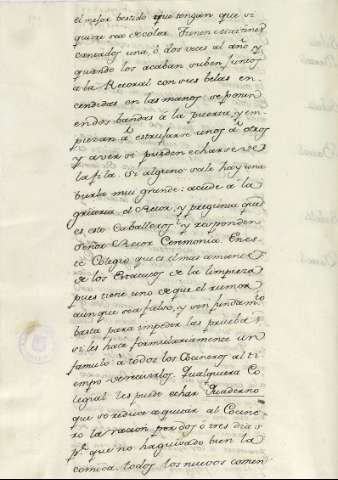 el mejor bestido que tengan que si
quiere sea de color. Tienen Maitines
cantados una, ó dos veces al año y
quando los acaban suben juntos
á la Rectoral con sus belas en-
cendidas en las manos se ponen
en dos bandas á la puerta, y em-
piezan á estrujarse unos á otros
y a ver si pueden echarse de
la fila. Si alguno sale hay una
burla mui grande: acude á la
griteria el Retor, y pregunta que
es esto Caballeros? y responden
Señor Retor Ceremonia. En es-
te Colegio que es el mas amante
de los Estatutos de la limpieza
pues tiene uno de que el rumor
aunque sea falso, y sin fundam.to
basta para impedir las pruebas
si les hace formulariamente un
famulo á todos los Cocineros al ti-
empo de recivirlos. Qualquiera Co-
legial les puede echar Quaderno
que se reduce a quitar al Cocine-
ro la racion por dos ó tres dias
p.r que no ha guisado bien la
comida. todos los nuevos comen